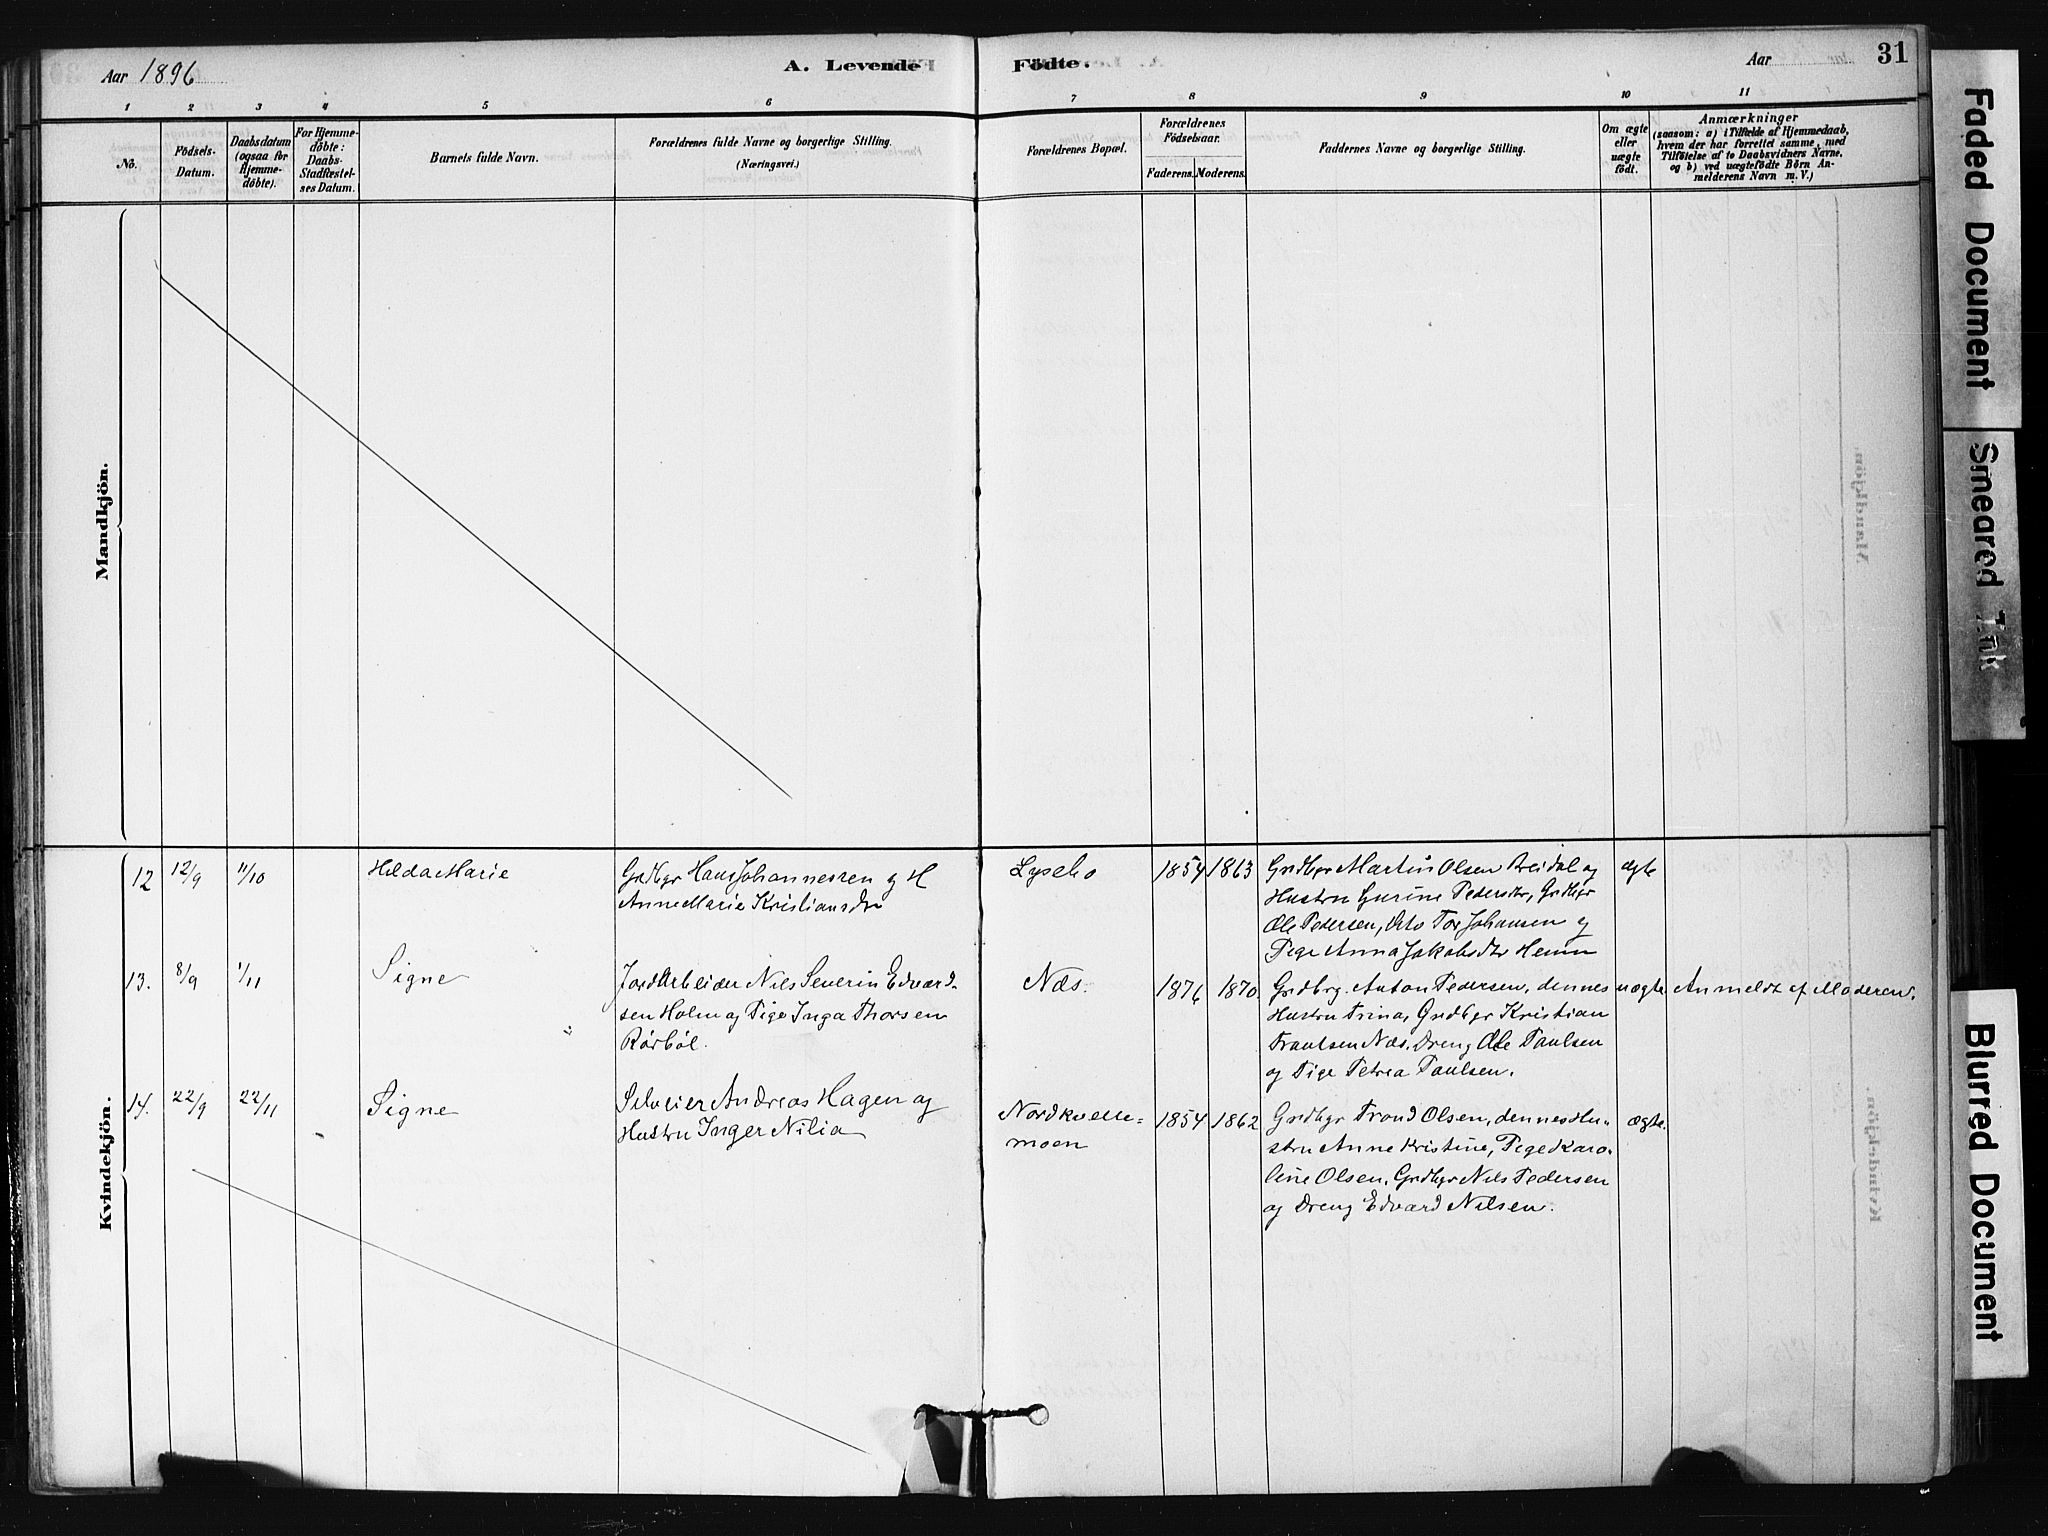 Aar 1896
A. Levende
Födte.
Aar
31
1
2
3
4
5
6
7
8
9
10
11
No.
Födsels-
Datum.
Daabsdatum
(ogsaa for
Hjemme-
döbte).
For Hjemme-
döbte:
Daabs-
Stadfæstel-
ses Datum.
Barnets fulde Navn.
Forældrenes fulde Navne og borgerlige Stilling.
(Næringsvei.)
Forældrenes Bopæl.
Forældrenes
Födselsaar.
Faderens.
Moderens.
Faddernes Navne og borgerlige Stilling.
Om ægte
eller
uægte
födt.
Anmærkninger
(saasom: a) i Tilfælde af Hjemmedaab,
hvem der har forrettet samme, med
Tilföielse af to Daabsvidners Navne,
og b) ved uægtefödte Börn An-
melderens Navn m. V.)
Mandkjön.
Kvindekjön.
12
12/9
11/10
Hilda Marie
Grdbgr Hans Johannessen og H
Anne Marie Kristiansdtr
Lysebo
1854
1863
Grdbgr Martin Olsen Breidal og
Hustru Gurine Pedersdtr, Grdbgr
Ole Pedersen, Tor Johansen og
Pige Anna Jakobsdtr
ægte
13.
8/9
1/11
Signe
Jordarbeider Nils Severin Edvard-
sen Holm og Pige Inga Thorsen
Rörböl.
Næs.
1876
1870.
Grdbrg. Anton Pedersen, dennes
Hustru Trina, Grdbgr Kristian
Frantsen Næs. Dreng Ole Paulsen
og Pige Petrea Paulsen.
uægte
Anmeldt af Moderen.
14.
22/9
22/11
Signe
Selveier Andreas Hagen og
Hustru Inger Nilia
Nordkvelle=
moen
1854
1862
Grdbgr Trond Olsen, dennes Hu-
stru Anne Kristine, Pige Karo-
line Olsen, Grdbgr Nils Pedersen
og Dreng Edvard Nilsen.
ægte.
Faded Document
Smeared Ink
Blurred Document